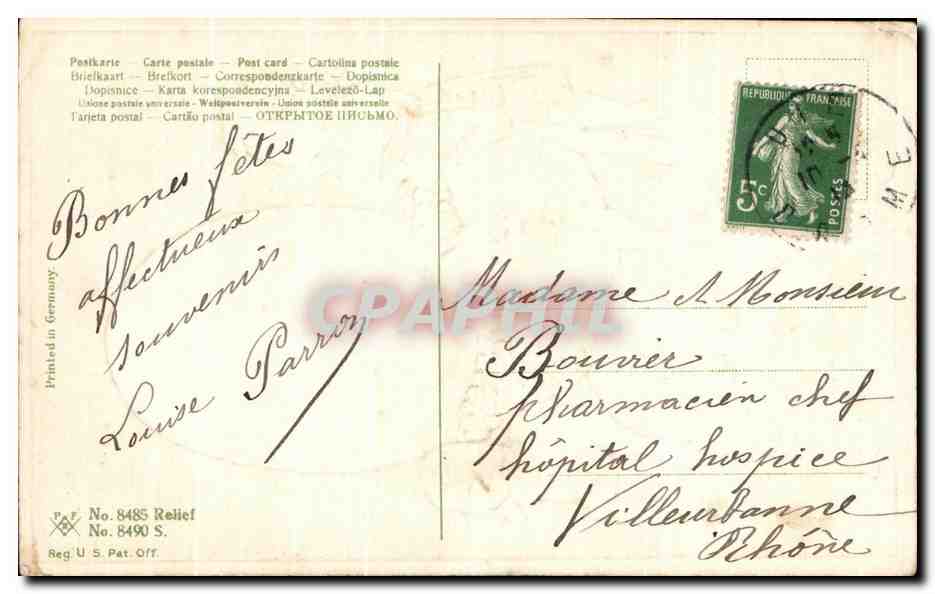 Postkarte – Carte postale – Post card – Cartolina postale
Briefkaart – Brefkort – Correspondenzkarte – Dopisnica
Dopisnice – Karta korespondencyjna – Levelező-Lap
Unione postale universale – Weltpostverein – Union postale universelle
Tarjeta postal – Cartão postal – ОТКРЫТОЕ ПИСЬМО.
Bonnes fêtes
affectueux
souvenirs
Louise Parron
Printed in Germany.
P F
B
No. 8485 Relief
No. 8490 S.
Reg. U S. Pat. Off.
REPUBLIQUE FRANÇAISE
5c
POSTES
Madame & Monsieur
Bouvier
pharmacien chef
hôpital hospice
Villeurbanne
Rhône
CPAPHIL